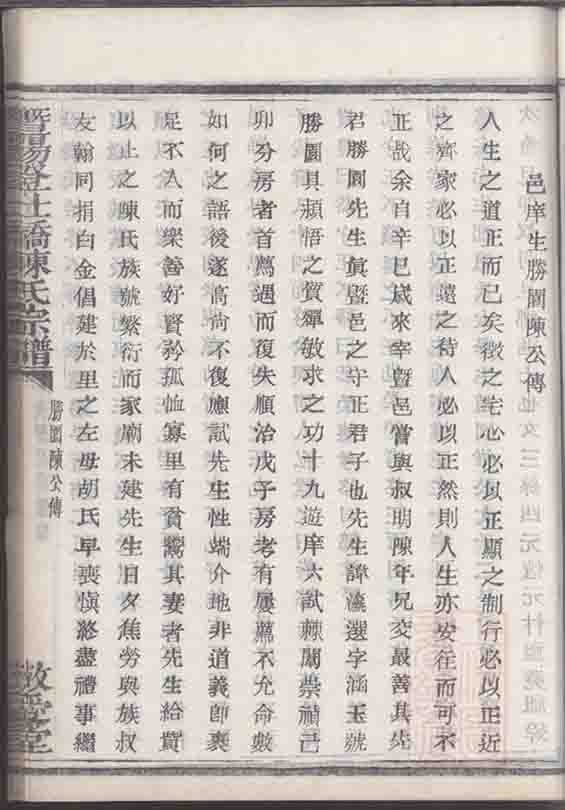 邑庠生勝園陳公傳
人生之道正而已矣徵之宅心必以正顯之制行必以正近
之齊家必以正遠之待人必以正然則人生亦安往而可不
正哉余自辛巳歲來宰暨邑嘗與叔明陳年兄交最善其先
君勝園先生眞暨邑之守正君子也先生諱瀛選字涵玉號
勝園具頴悟之質殫敏求之功十九遊庠六試棘闈崇禎己
卯分房者首薦遇而復失順治戊子房考有屢薦不允命數
如何之語後遂高尚不復應試先生性端介地非道義卽裹
足不入而樂善好賢矜孤恤寡里有貧鬻其妻者先生給貲
以止之陳氏族號繁衍而家廟未建先生日夕焦勞與族叔
友翰同捐白金倡建於里之左母胡氏早喪愼終盡禮事繼
暨陽登仕橋陳氏宗譜
勝園陳公傳
敦睦堂